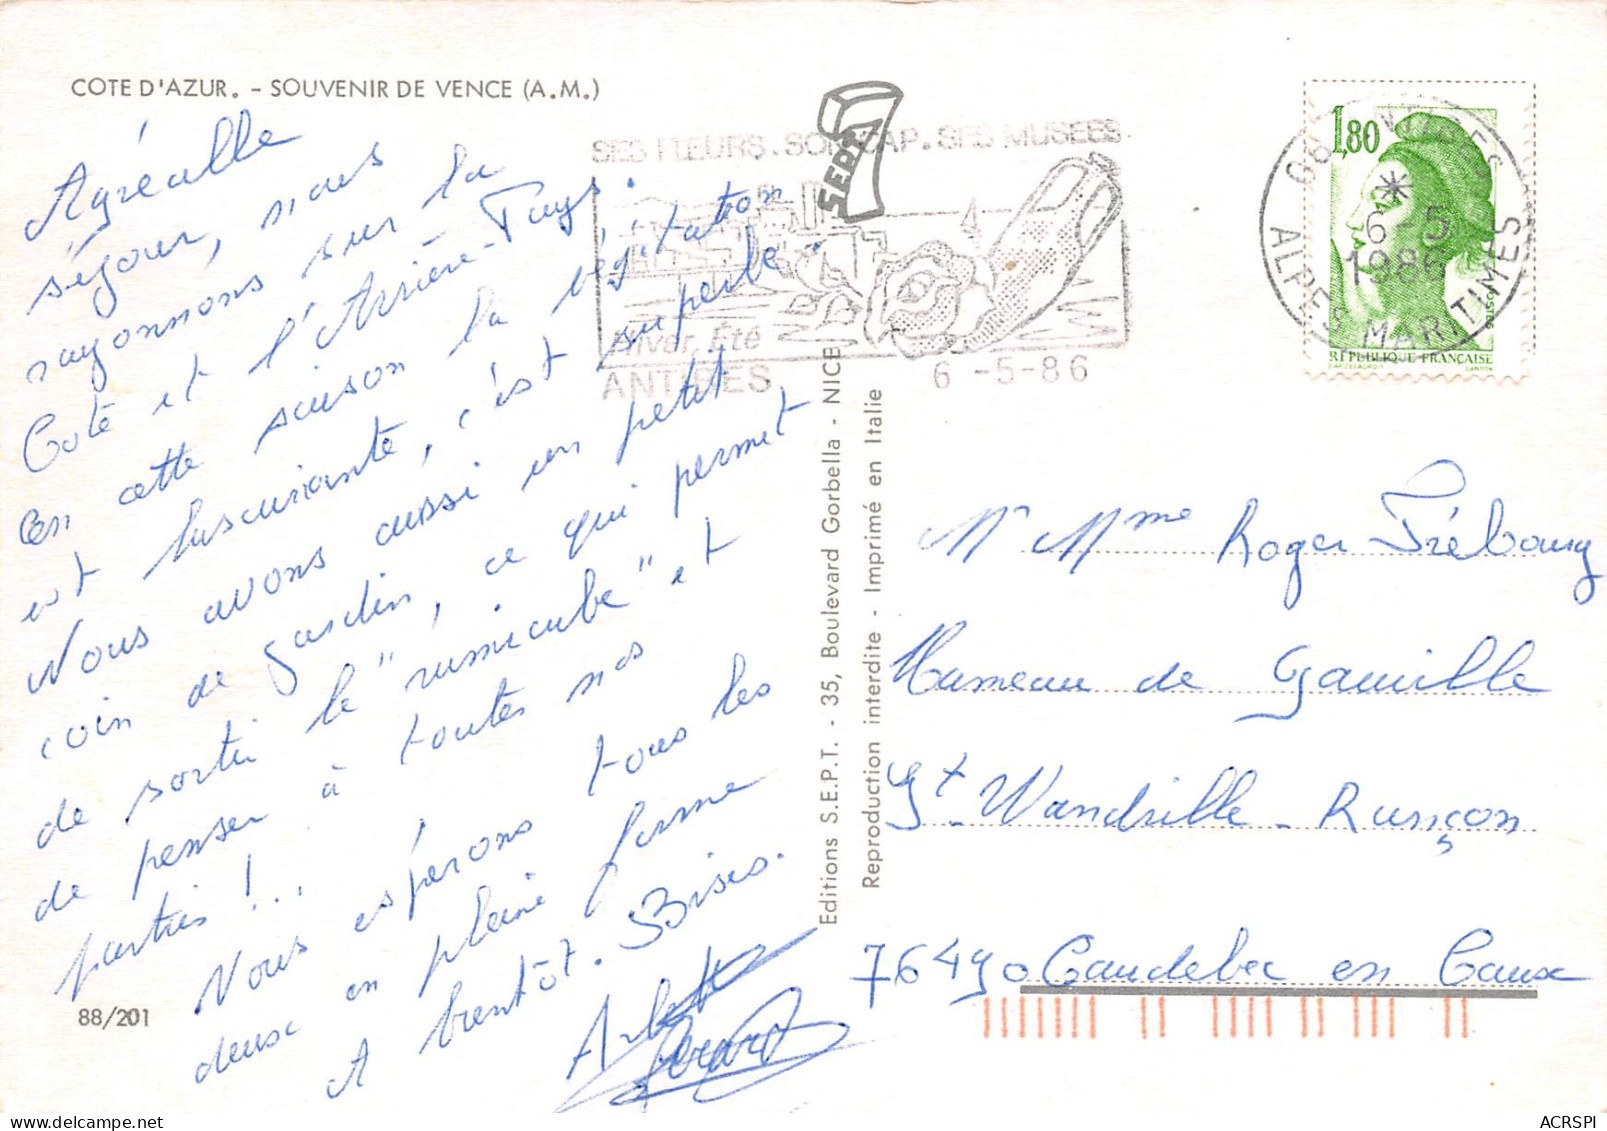 COTE D'AZUR. - SOUVENIR DE VENCE (A.M.)
Agréable
séjour, nous
rayonnons sur la
Côte et l'Arrière-Pays.
En cette saison la végétation
est luxuriante, c'est superbe.
Nous avons aussi un petit
coin de jardin, ce qui permet
de sortir le "rumicube" et
de penser à toutes nos
parties !...
Vous espérons tous les
deux en pleine forme
A bientôt. Bises.
Arlette
Gérard
88/201
SEPT
SES FLEURS. SON CAP. SES MUSEES
Hiver, Eté
ANTIBES
6 -5-86
Editions S.E.P.T. - 35, Boulevard Gorbella - NICE
Reproduction interdite - Imprimé en Italie
1,80
POSTES
RÉPUBLIQUE FRANÇAISE
GANDON
06 ANTIBES
6-5
1986
ALPES MARITIMES
Mr Mme Roger Trébourg
Hameau de Gauville
St Wandrille - Rançon
76490 Caudebec en Caux
ACRSPI